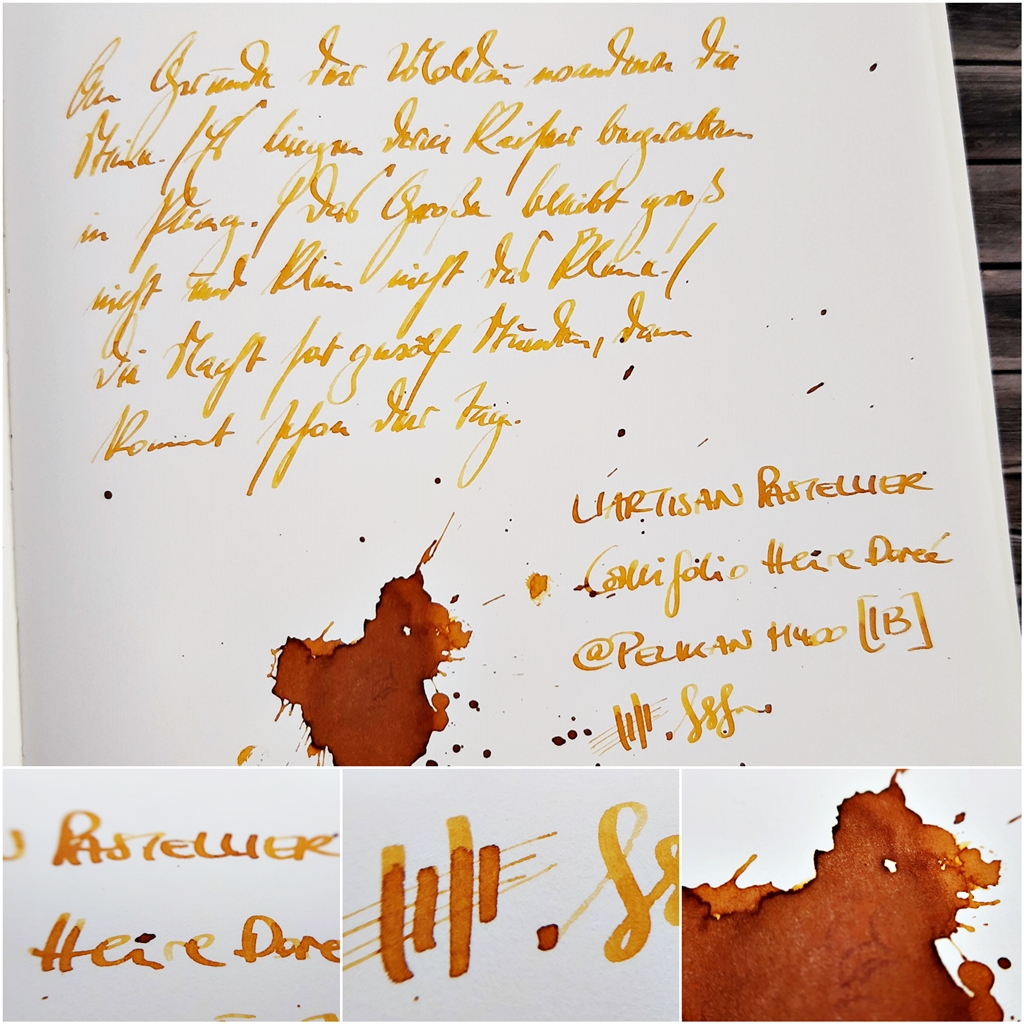 Am Grunde der Moldau wandern die
Steine. / Es liegen drei Kaiser begraben
in Prag. / Das Große bleibt groß
nicht und klein nicht das Kleine. /
Die Nacht hat zwölf Stunden, dann
kommt schon der Tag.
L'ARTISAN PASTELLIER
Callifolio Heure Doreé
@PELIKAN M400 [IB]
PASTELLIER
Heure Dore